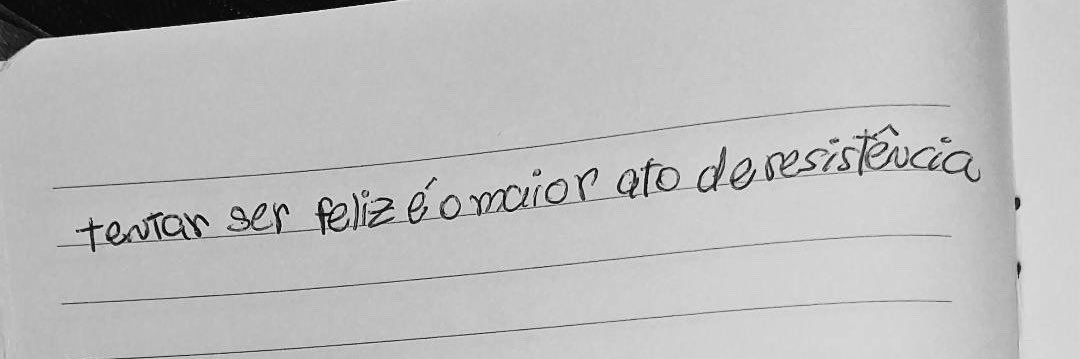 tentar ser feliz é o maior ato de resistência